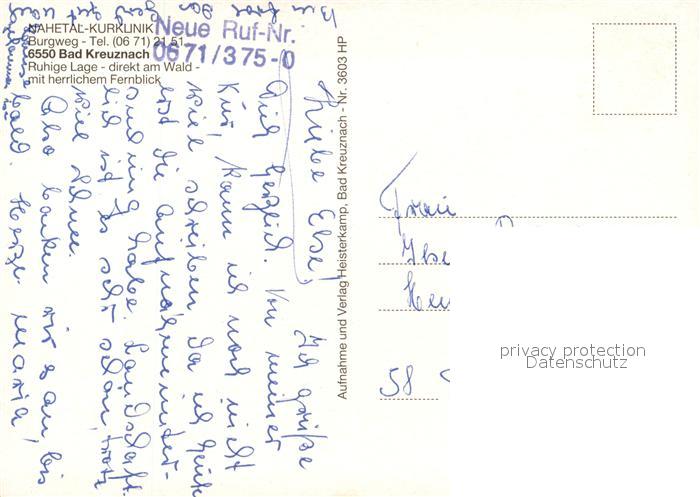 NAHETAL-KURKLINIK
Burgweg - Tel. (06 71) 21 51
6550 Bad Kreuznach
Ruhige Lage - direkt am Wald -
mit herrlichem Fernblick
Neue Ruf-Nr.
0671/375-0
Aufnahme und Verlag Heisterkamp, Bad Kreuznach - Nr. 3603 HP
Liebe Else!
Ich grüße
Dich herzlich. Von meiner
Kur, kann ich noch nicht
viel schreiben da ich heute
erst die Aufnahmeunter-
suchung habe. Landschaft-
lich ist es sehr schön, trotz
viel Schnee.
Also warten wir es an, bis
bald. Herzl. Maria
Frau
58
privacy protection
Datenschutz